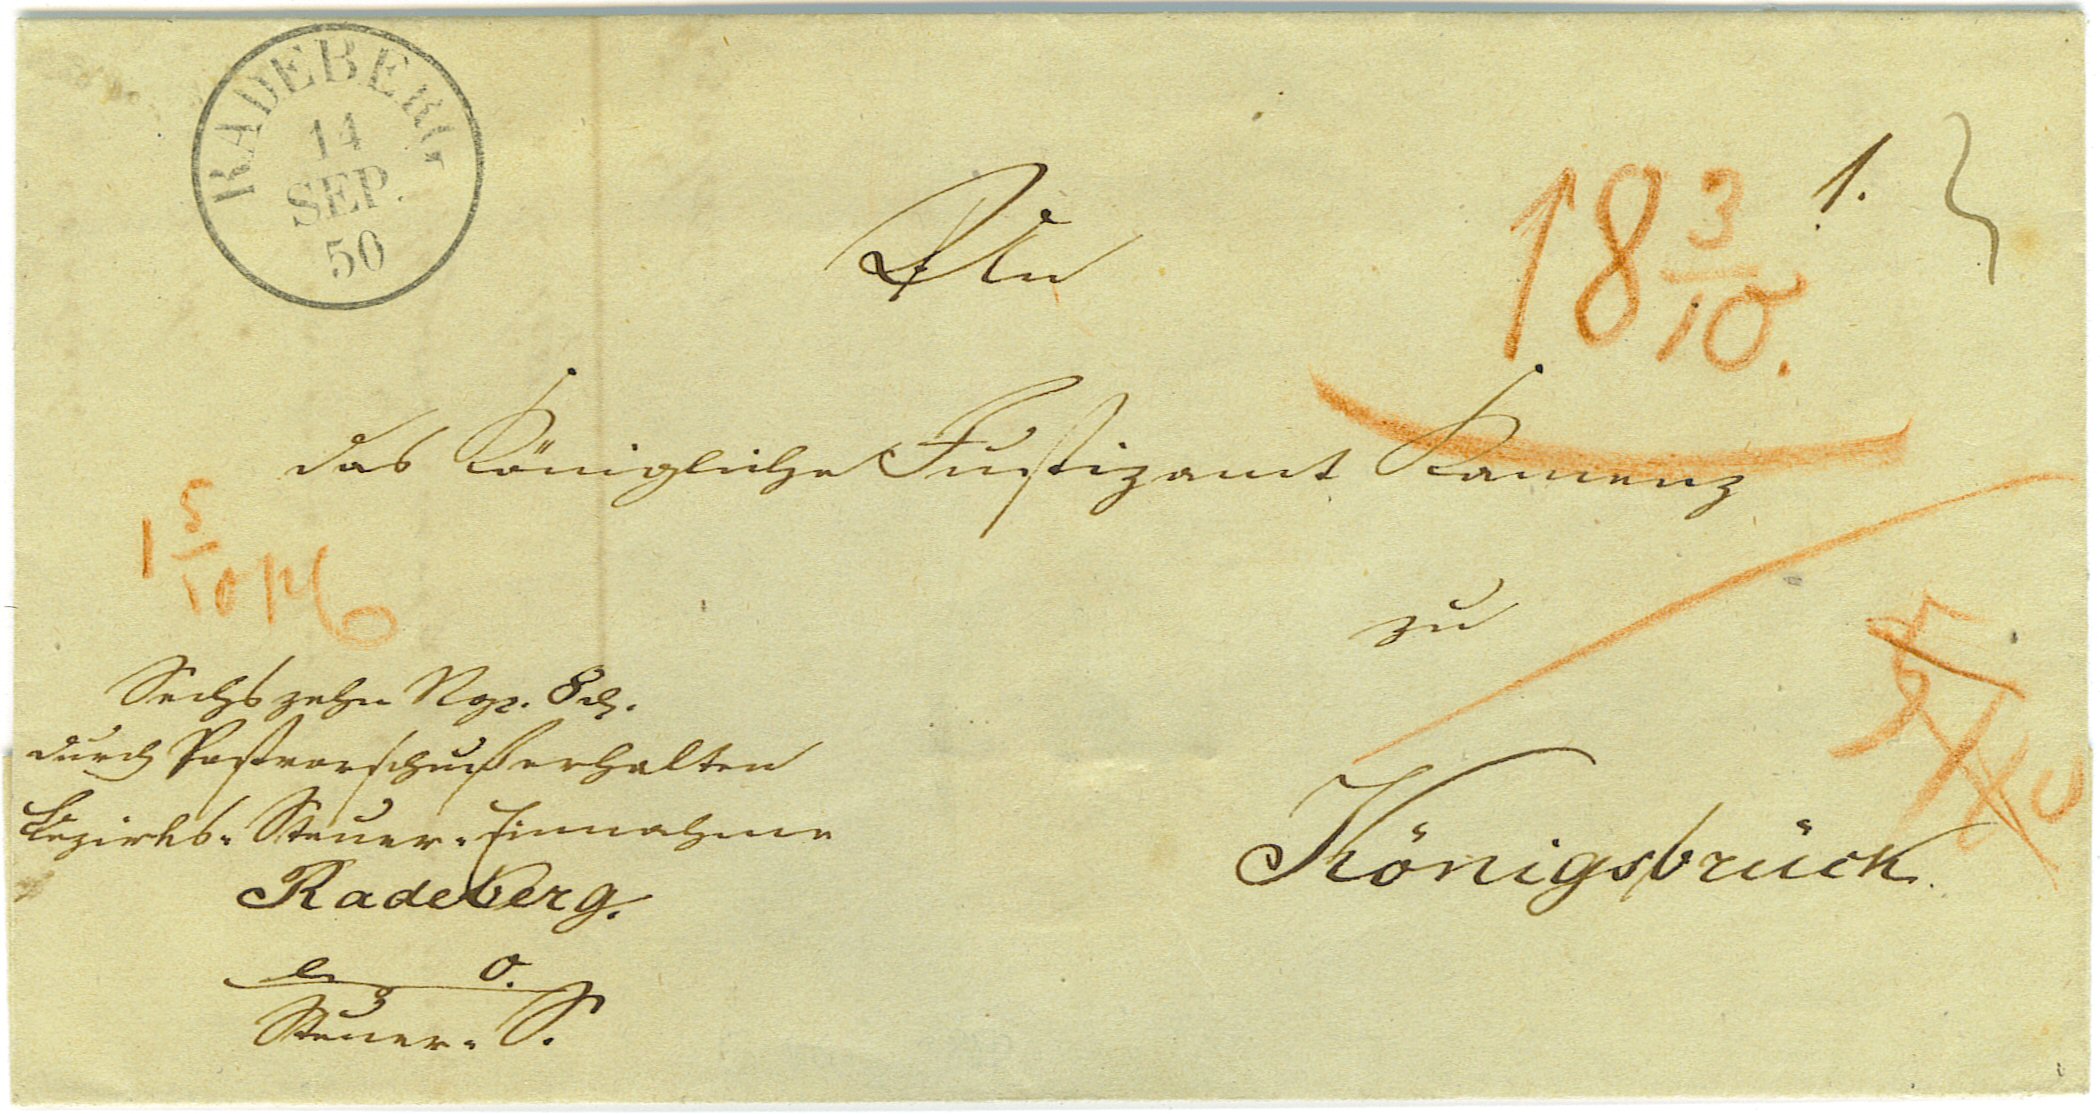 RADEBERG
14
SEP.
50
18 3/10.
1.
An
das Königliche Justizamt Kamenz
zu
Königsbrück.
1 5/10
Sechszehn Ngr. 8 d.
durch Postvorschuß erhalten
Bezirks-Steuer-Einnahme
Radeberg.
Steuer-S.